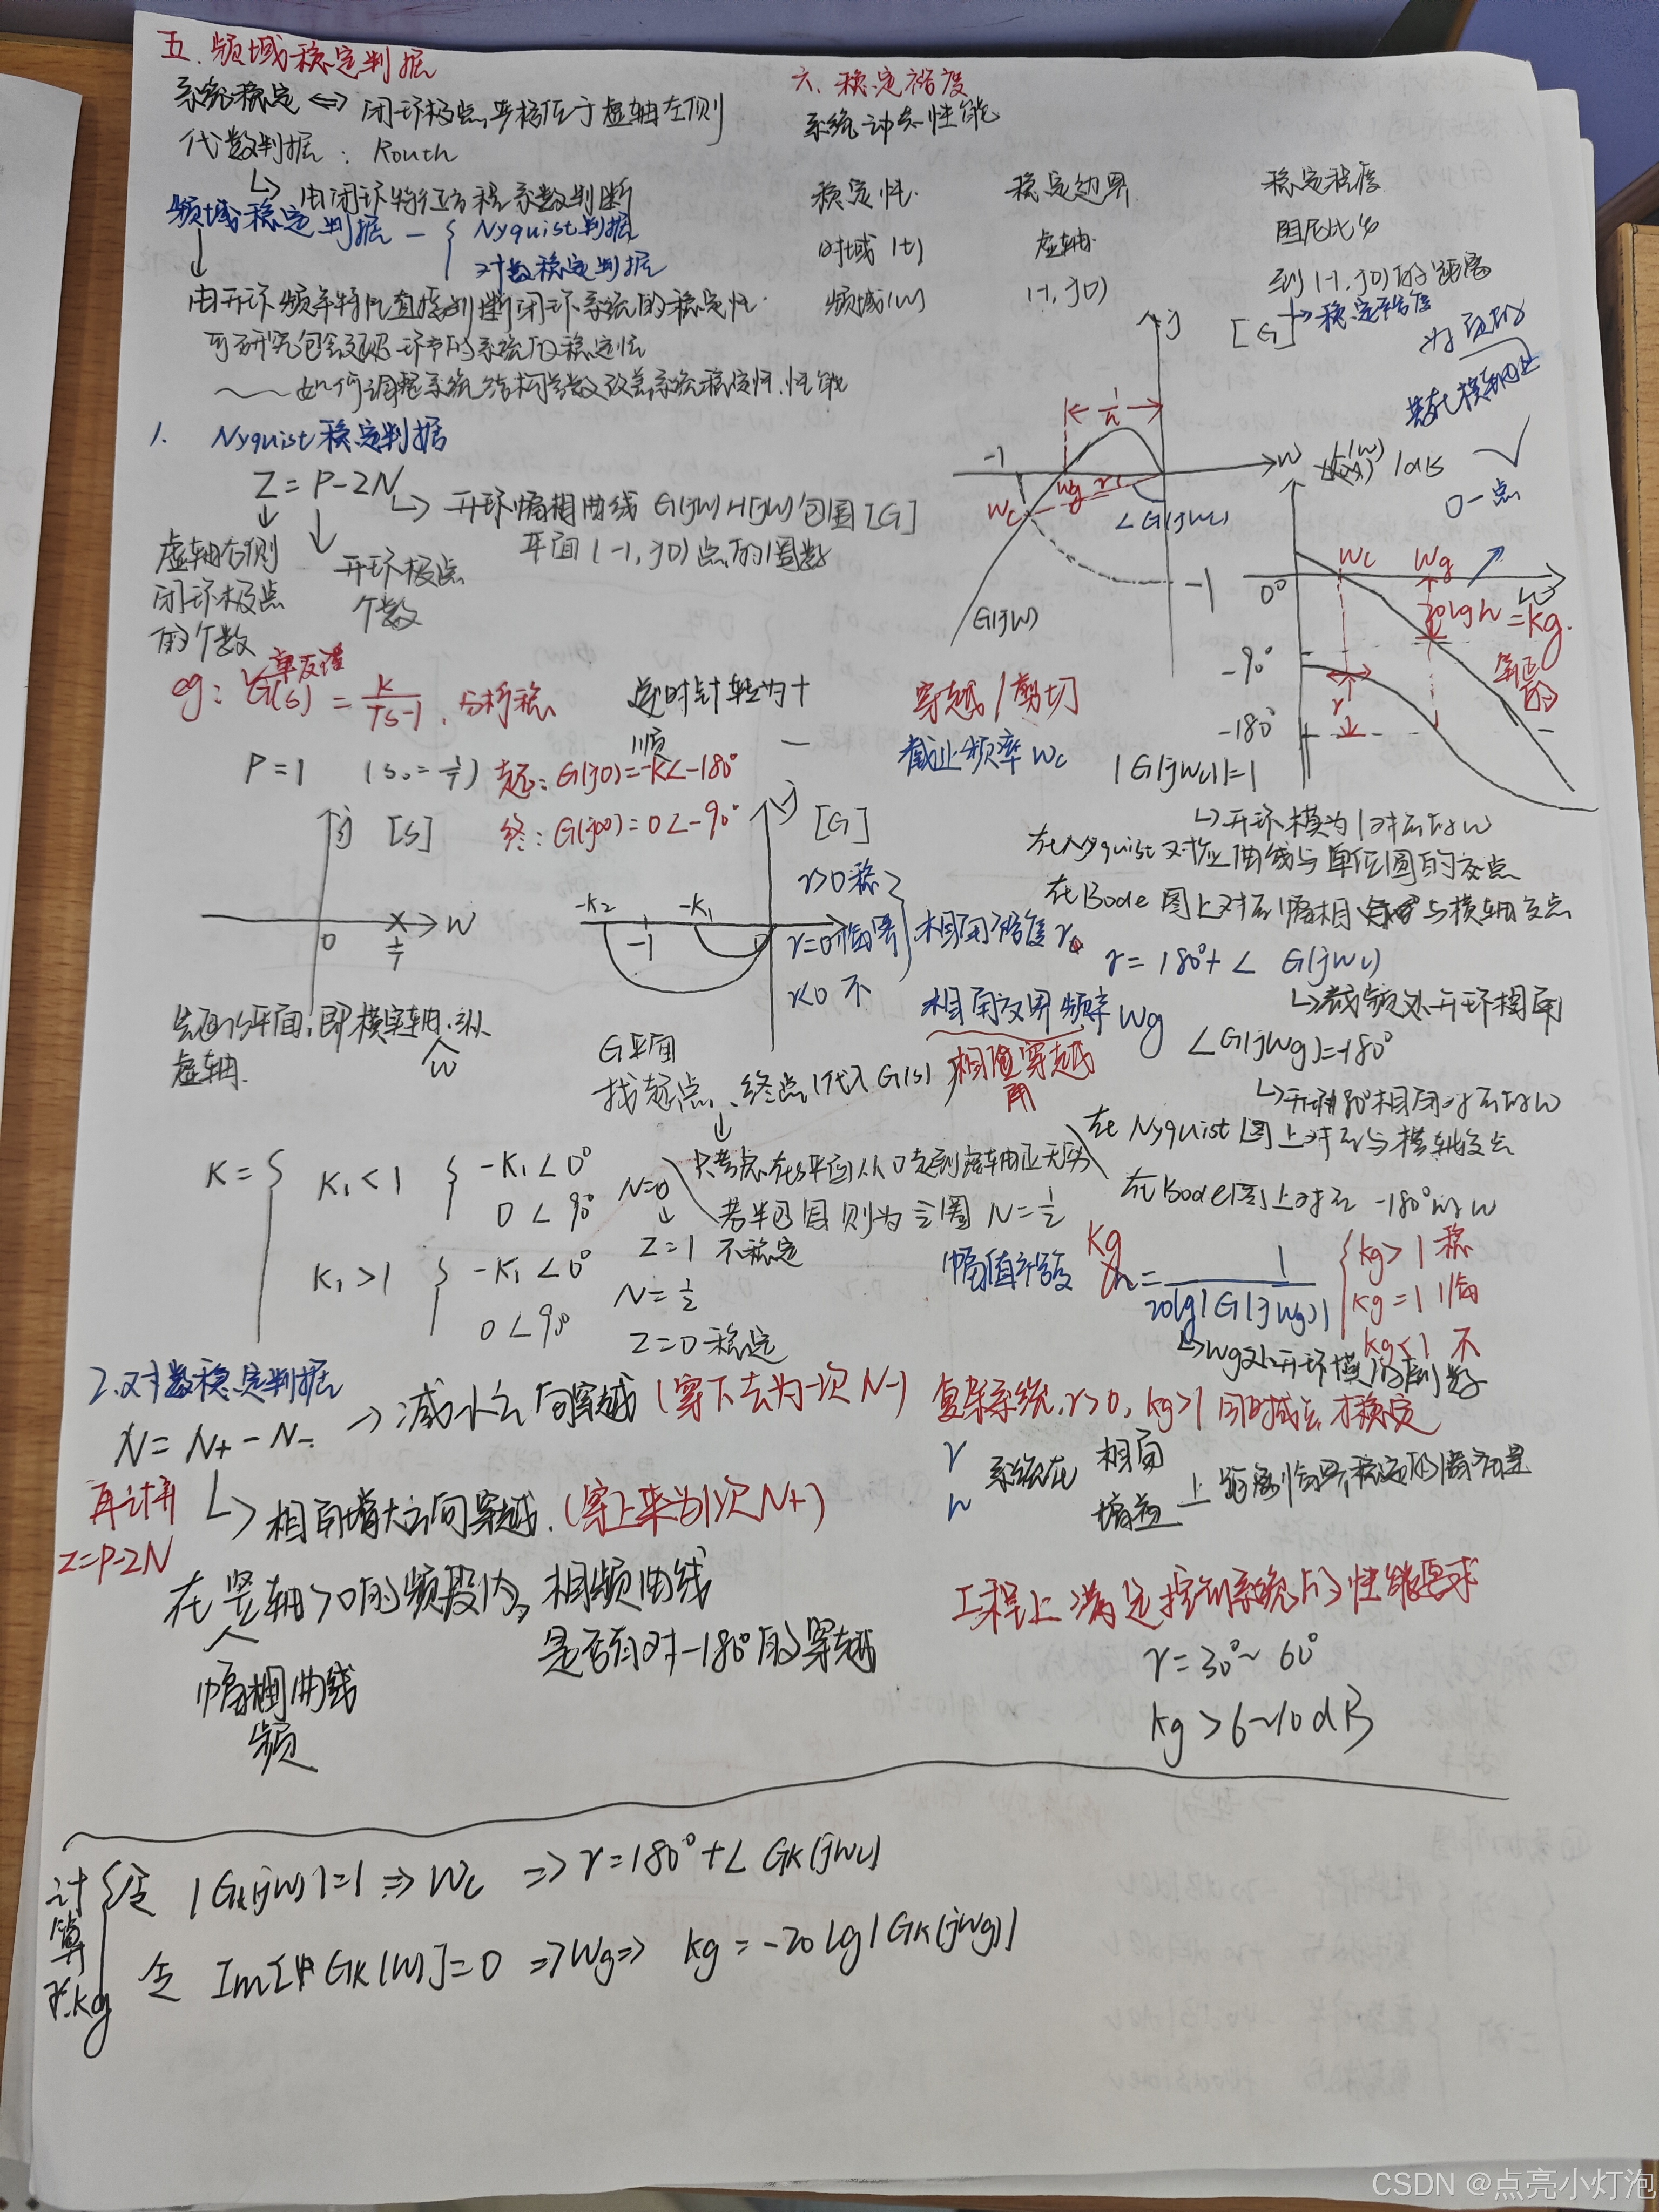 五.频域稳定判据
系统稳定 ⟺ 闭环极点严格位于虚轴左侧
代数判据:Routh
↳ 由闭环特征方程系数判断
频域稳定判据 — { Nyquist判据
对数稳定判据
由开环频率特性直接判断闭环系统的稳定性.
可研究包含延迟环节的系统的稳定性
~~~如何调整系统结构参数改善系统稳定性.性能
1. Nyquist稳定判据
Z = P-2N
↳ 开环幅相曲线 G(jw)H(jw)包围[G]
平面(-1,j0)点的圈数
虚轴右侧
闭环极点
的个数
开环极点
个数
单反馈
eg: G(s) = K/(Ts-1). 分析稳
逆时针转为+
顺 —
P=1 (s₀=1/T) 起:G(j0)=-K∠-180°
终:G(j∞)=0∠-90°
j [S]
0 1/T w
j [G]
-K₂ -1 -K₁ 0
先画S平面,即横实轴.纵
虚轴. w
G平面
找起点、终点(代入G(s))
只考虑在S平面从0走到虚轴正无穷
若半包围则为半圈 N=1/2
K= { K₁<1 { -K₁∠0°
0∠90°
N=0
↓
Z=1 不稳定
K₁>1 { -K₁∠0°
0∠90°
N=1/2
Z=0 稳定
2.对数稳定判据
N = N₊-N₋ → 减小方向穿越(穿下去为一次N-)
↳ 相角增大方向穿越.(穿上来为1次N+)
再计算
Z=P-2N
在竖轴>0的频段内,相频曲线
是否有对-180°的穿越
幅相曲线
频
六.稳定裕度
系统动态性能
稳定性 稳定边界 稳定程度
时域(t) 虚轴 阻尼比ξ
频域(w) (-1,j0) 到(-1,j0)的距离
↳稳定裕度
j [G]
1/h
-1 wc wg γ w
∠G(jwc)
-1
G(jw)
L(w) /dB
0一点
wc wg
0° w
20lgh=kg.
-90°
γ
-180°
穿越/剪切
截止频率wc |G(jwc)|=1
↳开环模为1对应的w
在Nyquist对应曲线与单位圆的交点
在Bode图上对应幅相 与横轴交点
γ>0 稳
γ=0 临界
γ<0 不
相角裕度γ. γ=180°+∠G(jwc)
↳截频处开环相角
相角交界频率wg ∠G(jwg)=-180°
相位穿越
角
↳开环180°相角对应的w
在Nyquist图上对应与横轴交点
在Bode图上对应-180°的w
幅值裕度 kg h=1/(20lg|G(jwg)|)
{ kg>1 稳
kg=1 临
kg<1 不
↳wg处开环模的倒数
复杂系统,γ>0,kg>1同时成立才稳定
γ
h
系统在 相角
增益 上距离临界稳定的
工程上满足控制系统的性能要求
γ=30°~60°
kg>6~10dB
计算γ.kg
{ 令 |Gk(jw)|=1 ⇒ wc ⇒ γ=180°+∠Gk(jwc)
令 Im[Gk(w)]=0 ⇒wg⇒ kg=-20lg|Gk(jwg)|
CSDN @点亮小灯泡